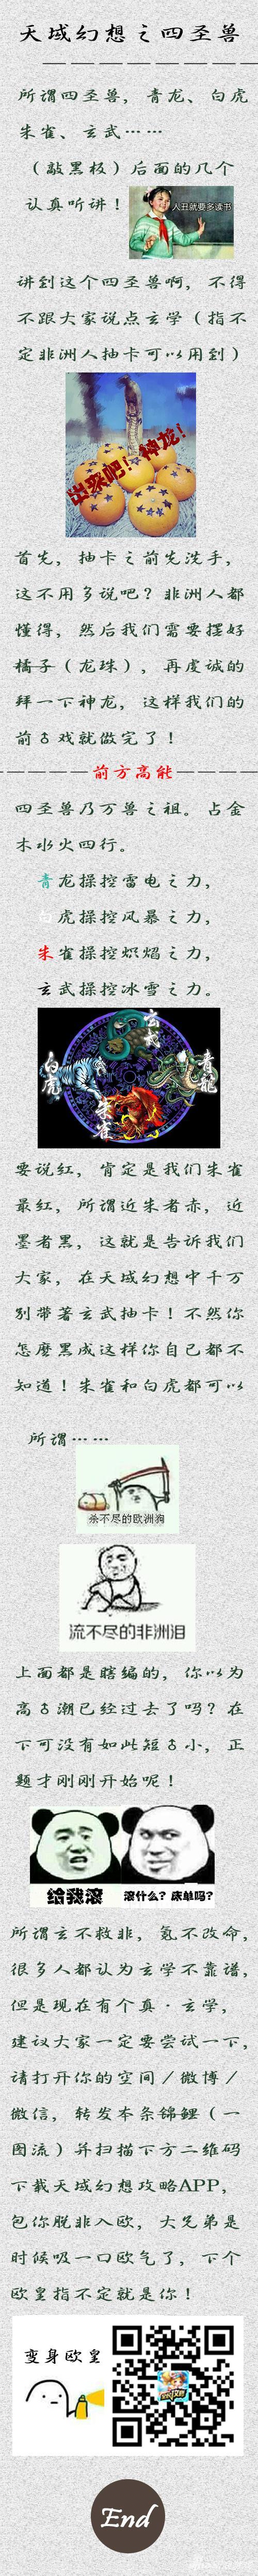 天域幻想之四圣兽
所谓四圣兽，青龙、白虎
朱雀、玄武……
（敲黑板）后面的几个
认真听讲！
人丑就要多读书
讲到这个四圣兽啊，不得
不跟大家说点玄学（指不
定非洲人抽卡可以用到）
出来吧！神龙！
首先，抽卡之前先洗手，
这不用多说吧？非洲人都
懂得，然后我们需要摆好
橘子（龙珠），再虔诚的
拜一下神龙，这样我们的
前δ戏就做完了！
前方高能
四圣兽乃万兽之祖。占金
木水火四行。
青龙操控雷电之力，
白虎操控风暴之力，
朱雀操控炽焰之力，
玄武操控冰雪之力。
玄武
白虎
青龍
朱雀
要说红，肯定是我们朱雀
最红，所谓近朱者赤，近
墨者黑，这就是告诉我们
大家，在天域幻想中千万
别带着玄武抽卡！不然你
怎麽黑成这样你自己都不
知道！朱雀和白虎都可以
所谓……
杀不尽的欧洲狗
流不尽的非洲泪
上面都是瞎编的，你以为
高δ潮已经过去了吗？在
下可没有如此短δ小，正
题才刚刚开始呢！
给我滚
滚什么？床单吗？
所谓玄不救非，氪不改命，
很多人都认为玄学不靠谱，
但是现在有个真·玄学，
建议大家一定要尝试一下，
请打开你的空间／微博／
微信，转发本条锦鲤（一
图流）并扫描下方二维码
下载天域幻想攻略APP，
包你脱非入欧，大兄弟是
时候吸一口欧气了，下个
欧皇指不定就是你！
变身欧皇
End